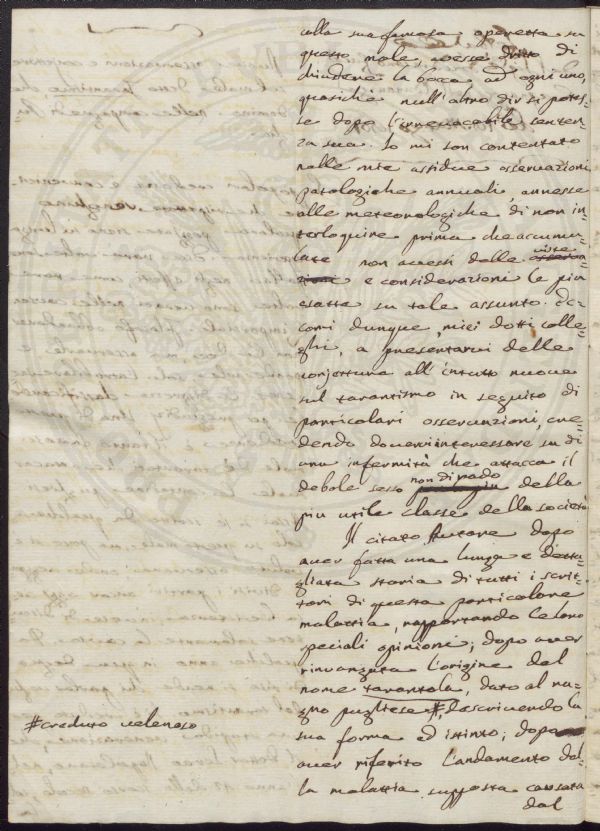 colla sua famosa operetta su
questo male avesse dritto di
chiudere la bocca ad ogni uno,
quasiche null'altro dir si potes=
se dopo l'irrevocabile senten=
za sua. Io mi son contentato
nelle mie assidue osservazioni
patologiche annuali, annesse
alle meteorologiche, di non in=
terloquire prima che accumu=
late non avessi delle viste
e considerazioni le più
esatte su tale assunto. Ec=
comi dunque, miei dotti colle=
ghi, a presentarvi delle
conjetture all'intutto nuove
sul tarantismo in seguito di
particolari osservazioni, cre=
dendo dovervi interessare su di
una infermità che attacca il
debole sesso non di rado della
più utile classe della società
Il citato Autore dopo
aver fatta una lunga e detta=
gliata storia di tutti i scrit=
tori di questa particolare
malattia, rapportando le loro
speciali opinioni; dopo aver
rinvangata l'origine del
nome tarantola, dato al ra=
gno pugliese #, descrivendo la
#creduto velenoso
sua forma ed istinto; dopo
aver riferito l'andamento del=
la malattia supposta causata
dal